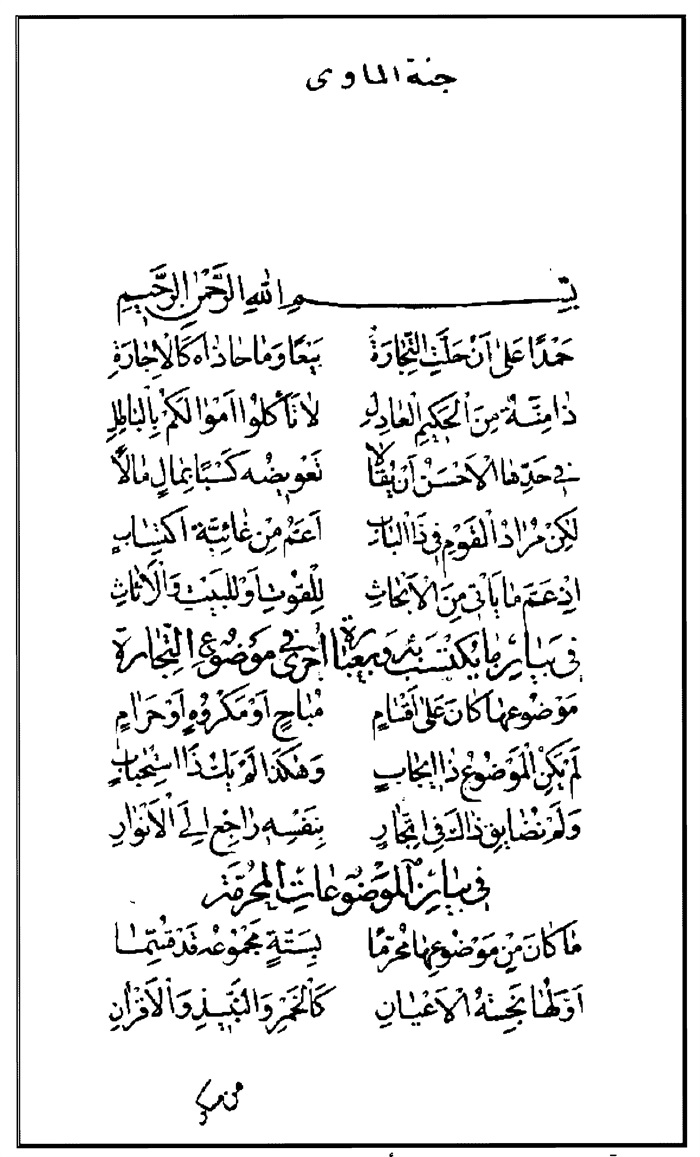 جنة الماوى
بِسْمِ اللهِ الرَّحْمٰنِ الرَّحِيمِ
حَمْدًا عَلىٰ اَنْ حَلَّتِ التِّجَارَةْ بَيْعًا وَمَا حَاذَاهُ كَالْاِجَارَةِ
ذَا مِنَّةٌ مِنَ الْحَكِيمِ الْعَادِلِ لَا تَأْكُلُوا اَمْوَالَكُمْ بِالْبَاطِلِ
فِي حَدِّهَا الْاَحْسَنُ اَنْ يُقَالَا تَعْوِيضُهُ كَسْبًا بِمَالٍ مَالًا
لٰكِنْ مُرَادُ الْقَوْمِ فِي ذَا الْبَابِ اَعَمُّ مِنْ غَائِيَّةِ اكْتِسَابٍ
اِذْ عَمَّ مَا يَأْتِي مِنَ الْاَبْحَاثِ لِلْقُوتِ اَوْ لِلْبَيْتِ وَالْاَثَاثِ
فِي بَيَانِ مَا يُكْتَسَبُ بِهِ وَبِعِبَارَةٍ اُخْرىٰ فِي مَوْضُوعِ التِّجَارَةِ
مَوْضُوعُهَا كَانَ عَلىٰ اَقْسَامٍ مُبَاحٍ اَوْ مَكْرُوهٍ اَوْ حَرَامٍ
لَمْ يَكُنِ الْمَوْضُوعُ ذَا اِيجَابٍ وَهٰكَذَا لَمْ يَكُ ذَا اسْتِحْبَابٍ
وَلَمْ نُضَايِقْ ذَاكَ فِي اتِّجَارٍ بِنَفْسِهِ رَاجِعْ اِلَى الْاَنْوَارِ
فِي بَيَانِ الْمَوْضُوعَاتِ الْمُحَرَّمَةِ
مَا كَانَ مِنْ مَوْضُوعِهَا مُحَرَّمًا بِسِتَّةٍ مَجْمُوعُهُ قَدْ قُسِّمَا
اَوَّلُهَا نَجِسَةُ الْاَعْيَانِ كَالْخَمْرِ وَالنَّبِيذِ وَالْاَقْرَانِ